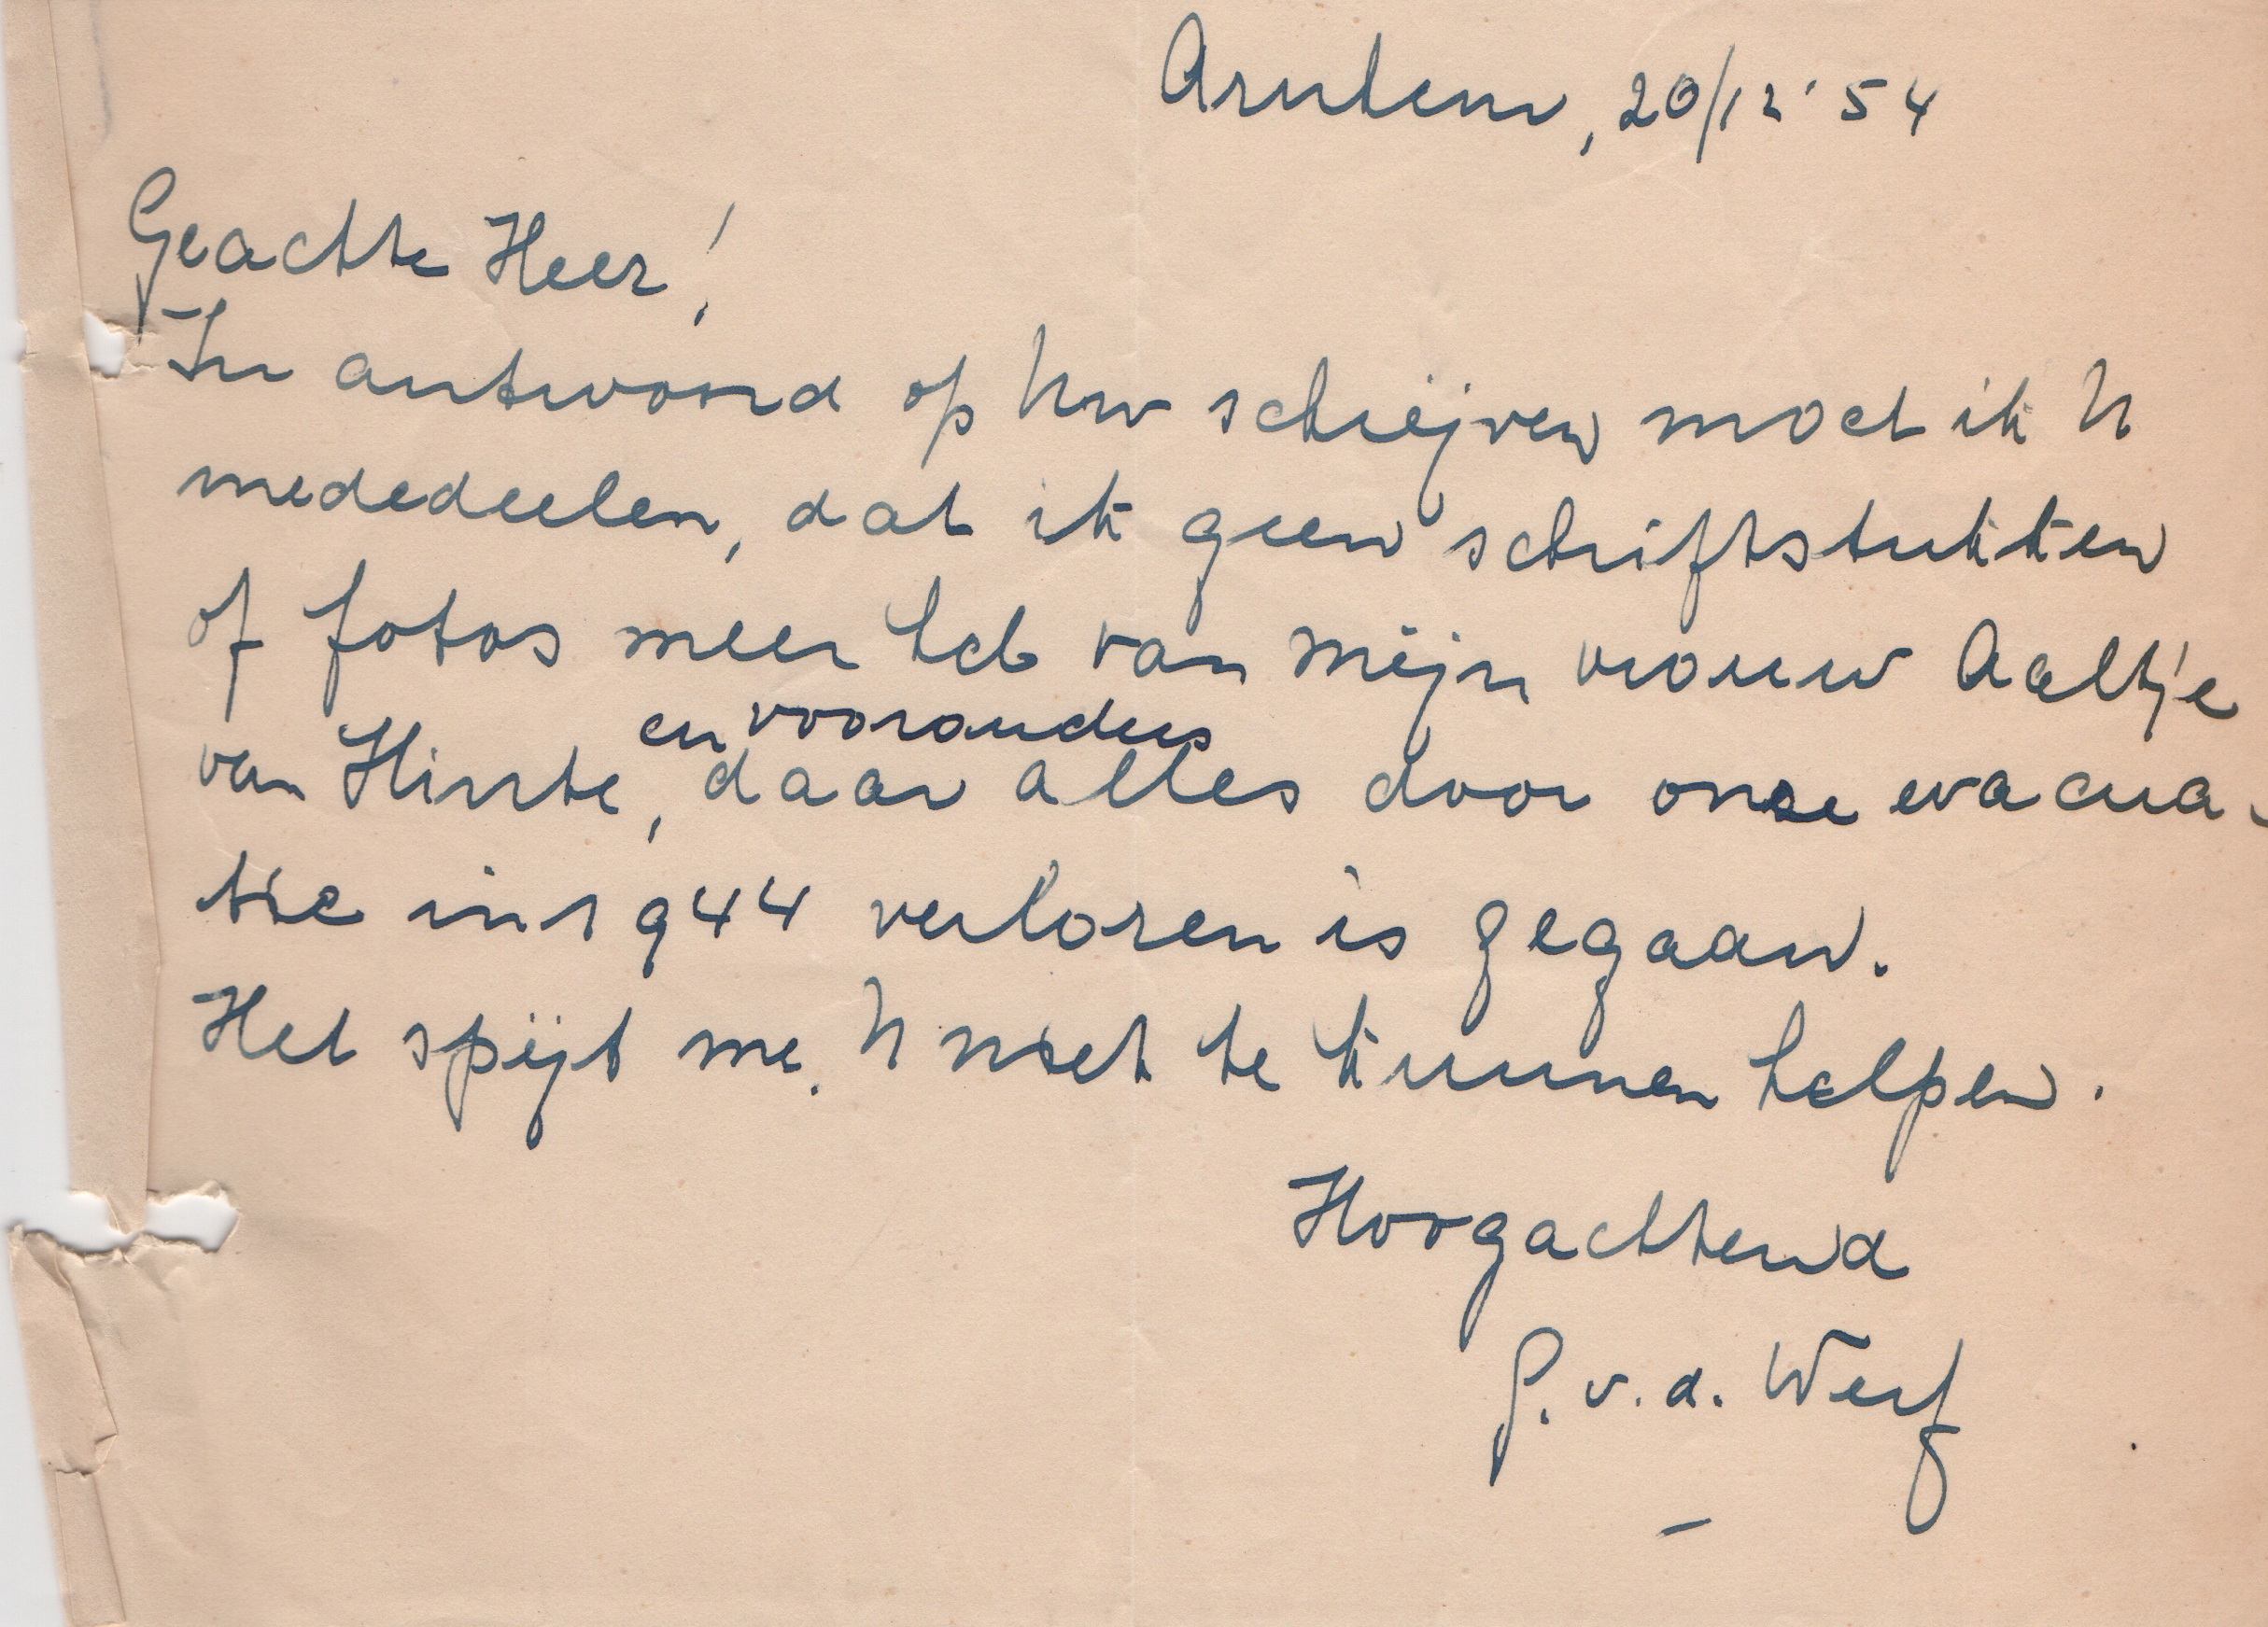 Arnhem, 20/12 '54
Geachte Heer!
In antwoord op Uw schrijven moet ik U
mededeelen, dat ik geen schriftstukken
of fotos meer heb van mijn vrouw Aaltje
en voorouders
van Hinte, daar alles door onze evacua-
tie in 1944 verloren is gegaan.
Het spijt me, U niet te kunnen helpen.
Hoogachtend
P. v. d. Werf